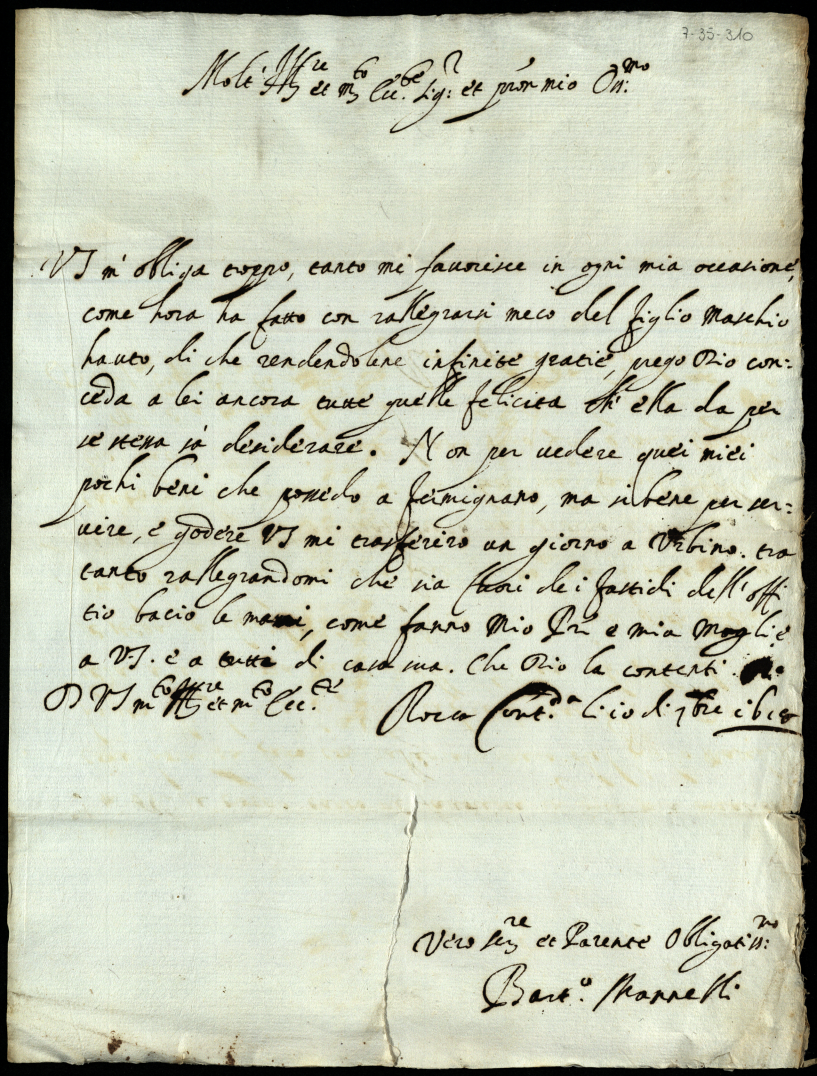 7-35-310
Molt' Ill.re et m.to Ecc.te Sig.r et pron mio Oss.mo
VS m' obliga troppo, tanto mi favorisce in ogni mia occasione,
come hora ha fatto con rallegrarsi meco del figlio Maschio
hauto, di che rendendolene infinite gratie, prego Dio con:
ceda a lei ancora tutte quelle felicita ch' ella da per
se stessa sà desiderare. Non per vedere quei miei
pochi beni che possedo a fermignano, ma sibene per ser:
vire, e godere VS mi trasferirò un giorno a Urbino. tra
tanto rallegrandomi che sia fuori dei fastidi dell' offi
tio bacio le mani, come fanno Mio Prè e mia Moglie
a VS. e a tutti di casa sua. Che Dio la contenti.
D VS m.to Ill.re et m.to Ecc.te
Rocca Cont.da li 10 di 7bre
Vero ser.re et Parente Obligatiss.mo
Bart.o Mannelli